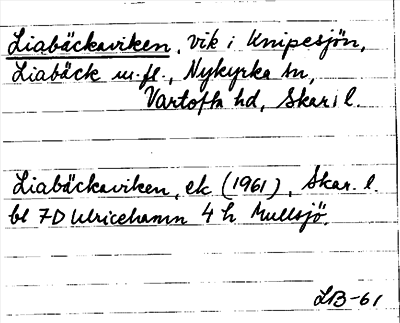 Liabäckaviken, vik i Knipesjön,
Liabäck m.fl., Nykyrka sn,
Vartofta hd, Skar. l.
Liabäckaviken, ek (1961), Skar. l.
bl 7D Ulricehamn 4 h Mullsjö.
LB-61